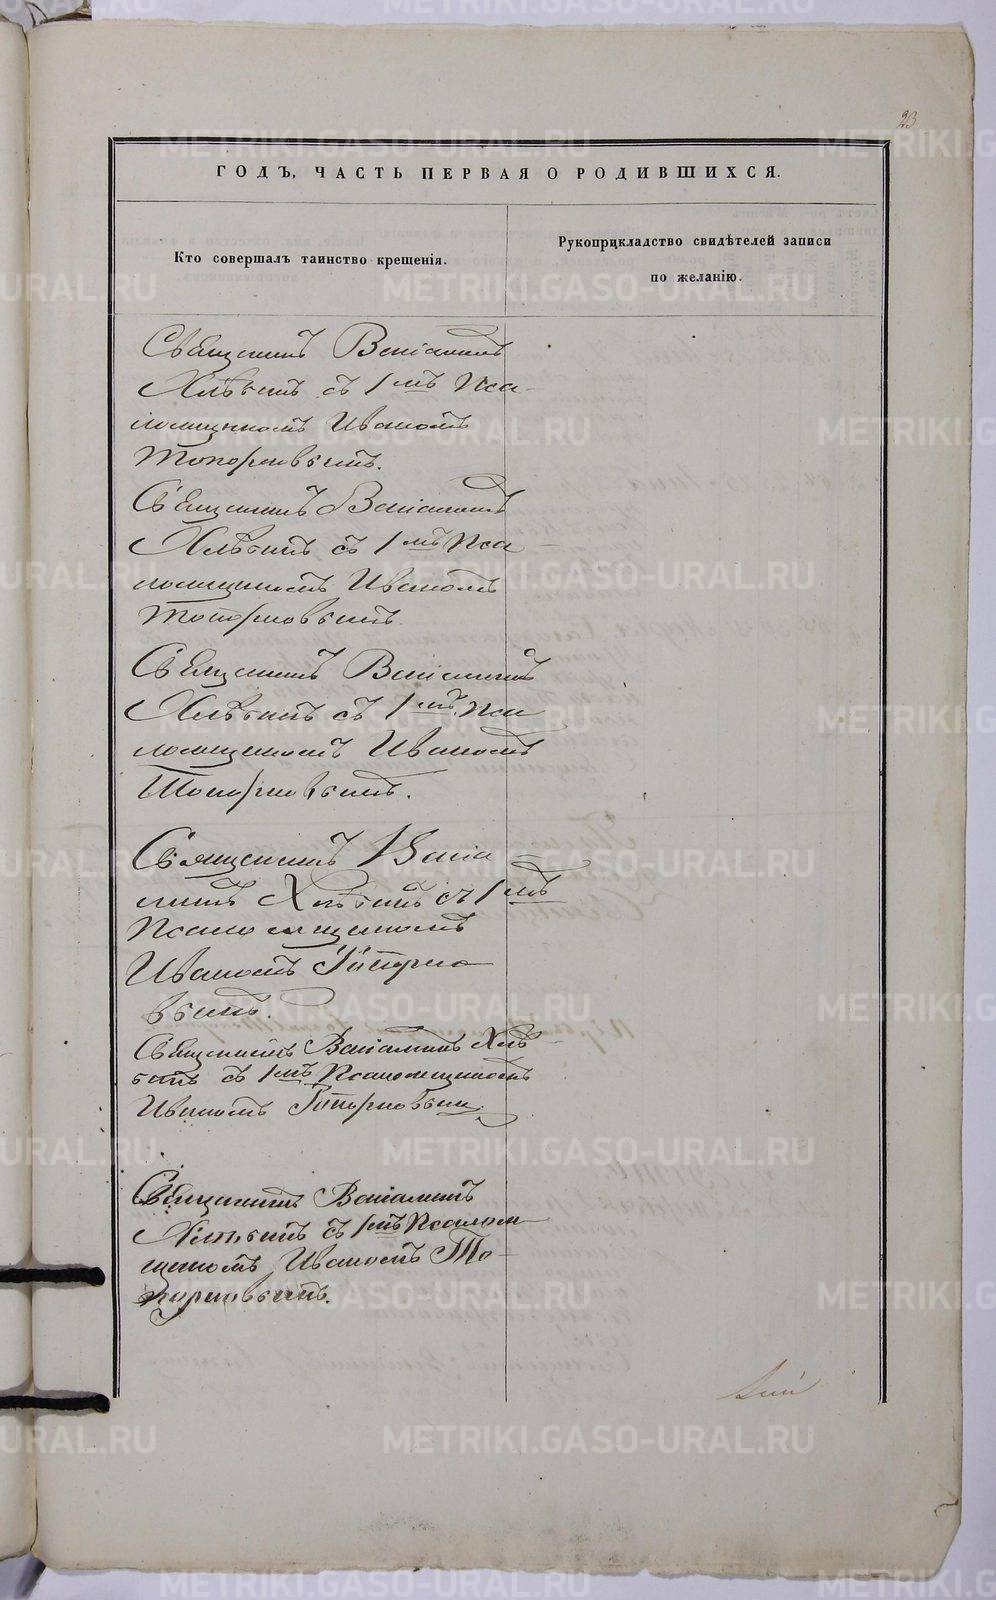 23
ГОДЪ, ЧАСТЬ ПЕРВАЯ О РОДИВШИХСЯ.
Кто совершалъ таинство крещенія.
Рукоприкладство свидѣтелей записи
по желанію.
Священникъ Веніаминъ
Хлѣбинъ съ 1мъ Пса-
ломщикомъ Иваномъ
Топорковымъ.
Священникъ Веніаминъ
Хлѣбинъ съ 1мъ Пса-
ломщикомъ Иваномъ
Топорковымъ
Священникъ Веніаминъ
Хлѣбинъ съ 1мъ Пса
ломщикомъ Иваномъ
Топорковымъ.
Священникъ Веніа
минъ Хлѣбинъ съ 1мъ
Псаломщикомъ
Иваномъ Топорко
вымъ.
Священникъ Веніаминъ Хлѣ-
бинъ съ 1мъ Псаломщикомъ
Иваномъ Топорковым.
Священникъ Веніаминъ
Хлѣбинъ съ 1мъ Псалом
щикомъ Иваномъ То-
порковымъ.
METRIKI.GASO-URAL.RU